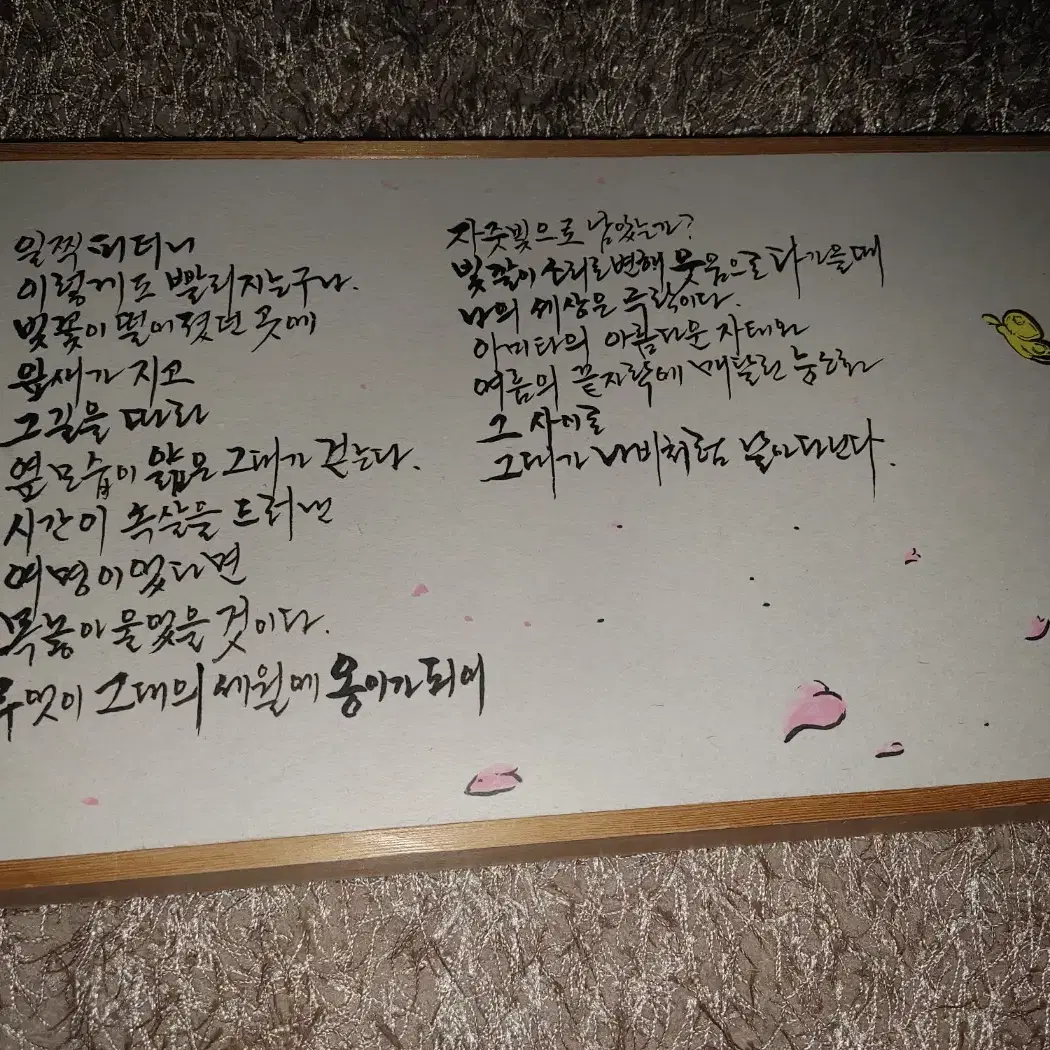 일찍 피더니
이렇게도 빨리 지는구나.
벚꽃이 떨어졌던 곳에
잎새가 지고
그길을 따라
옆모습이 얇은 그대가 걷는다.
시간이 속살을 드러낸
여명이었다면
목놓아 울었을 것이다.
무엇이 그대의 세월에 옹이가 되어
자줏빛으로 남았는가?
빛깔이 소리로변해 웃음으로 다가올때
나의 세상은 추락이다.
아미타의 아름다운 자태와
여름의 끝자락에 매달린 능소화
그 사이로
그대가 나비처럼 날아다닌다.